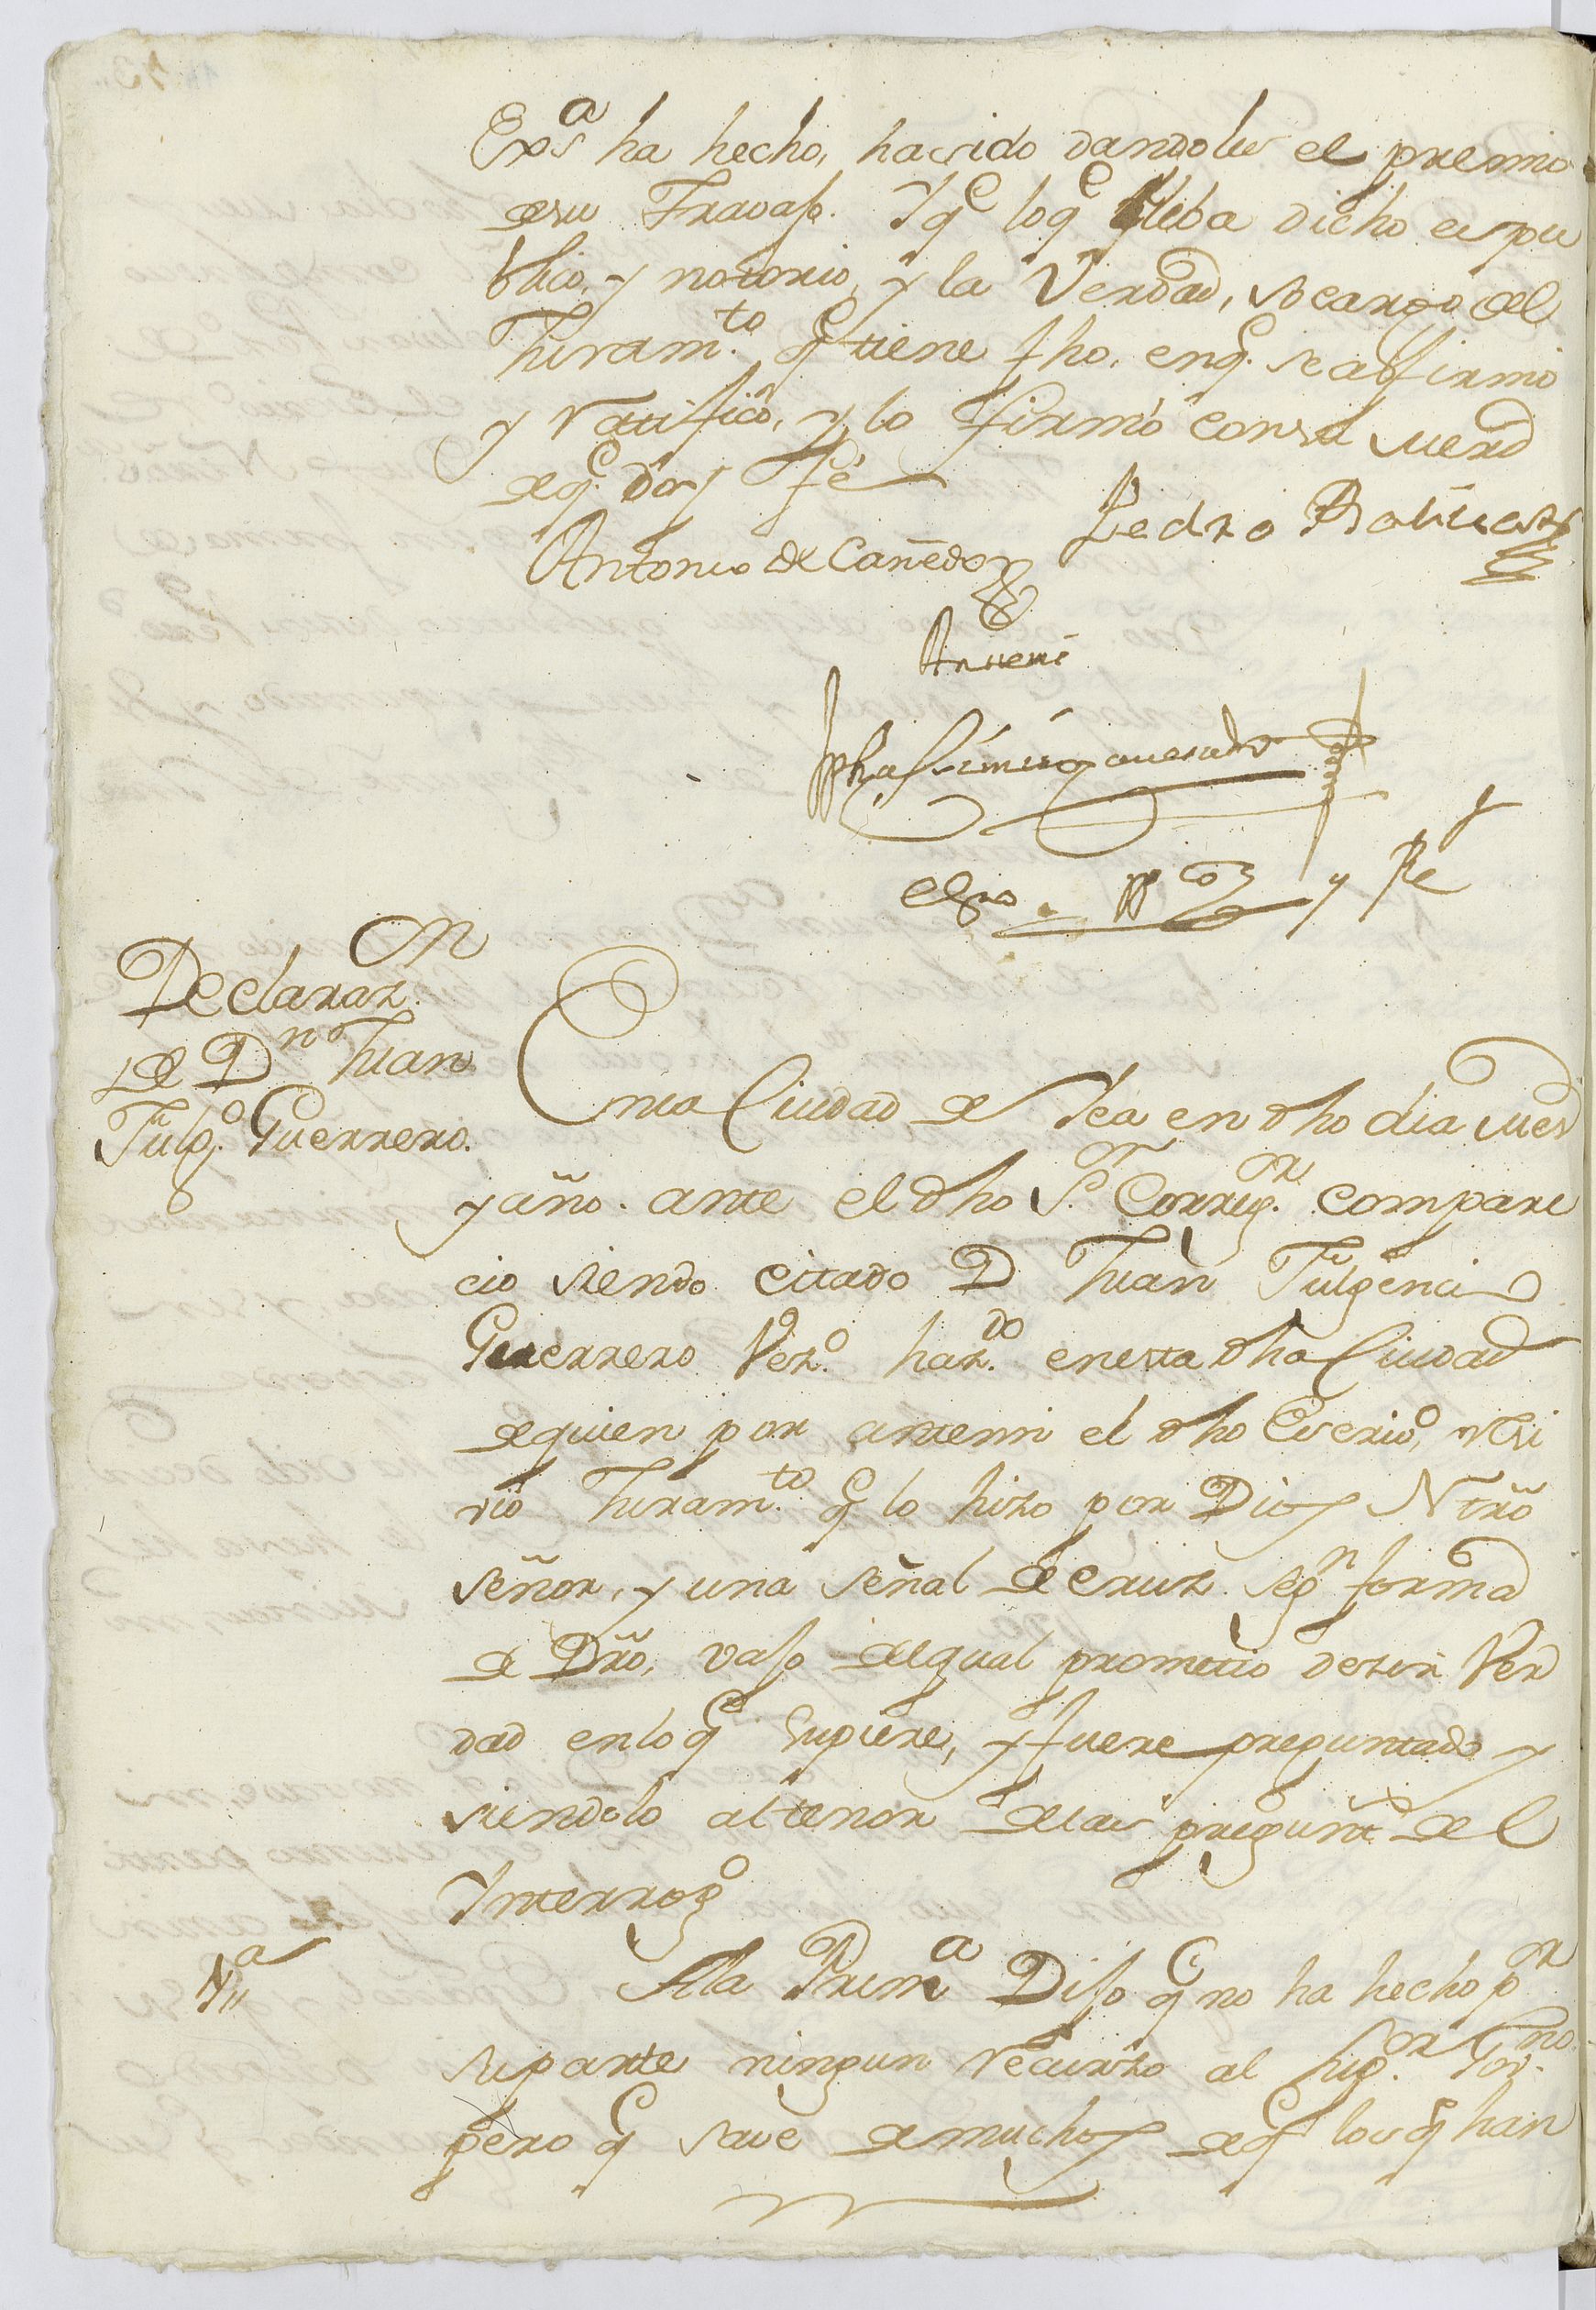 Exª ha hecho, ha sido dandoles el premio
desu Travajo. Yq̃ loq̃ lleba dicho es pu
blico, y notorio, y la Verdad, so cargo del
Juram.to q̃ tiene fho. enq̃. se afirmó
y ratificó, y lo firmó consu merd
deq̃. doy fé
Pedro
Antonio de Cañedo
Antemi
Esno ppco y Re
Declaraz.on
de Dn Juan
Fulg.o Guerrero.
Enla Ciudad de Yca en dho dia mes
y año. ante el dho S.r Correg.or compare
cio siendo citado D Juan Fulgenci
Guerrero Vez.o haz.do enesta dha Ciudad
dequien por antemi el dho Escrio, resi
vió Juram.to q̃ lo hizo por Dios Ntrõ
señor, y una señal de cruz segn forma
de Drõ, vajo delqual prometio dezir Ver
dad enloq̃ supiere, y fuere preguntado y
siendolo altenor delas pregunt.s del
Ynterrogo
1ª
Ala Primª Dijo q̃ no ha hecho pr
suparte ningun recurso al sup.or Gov.no
pero q̃ save demuchos deq̃ losq̃ han